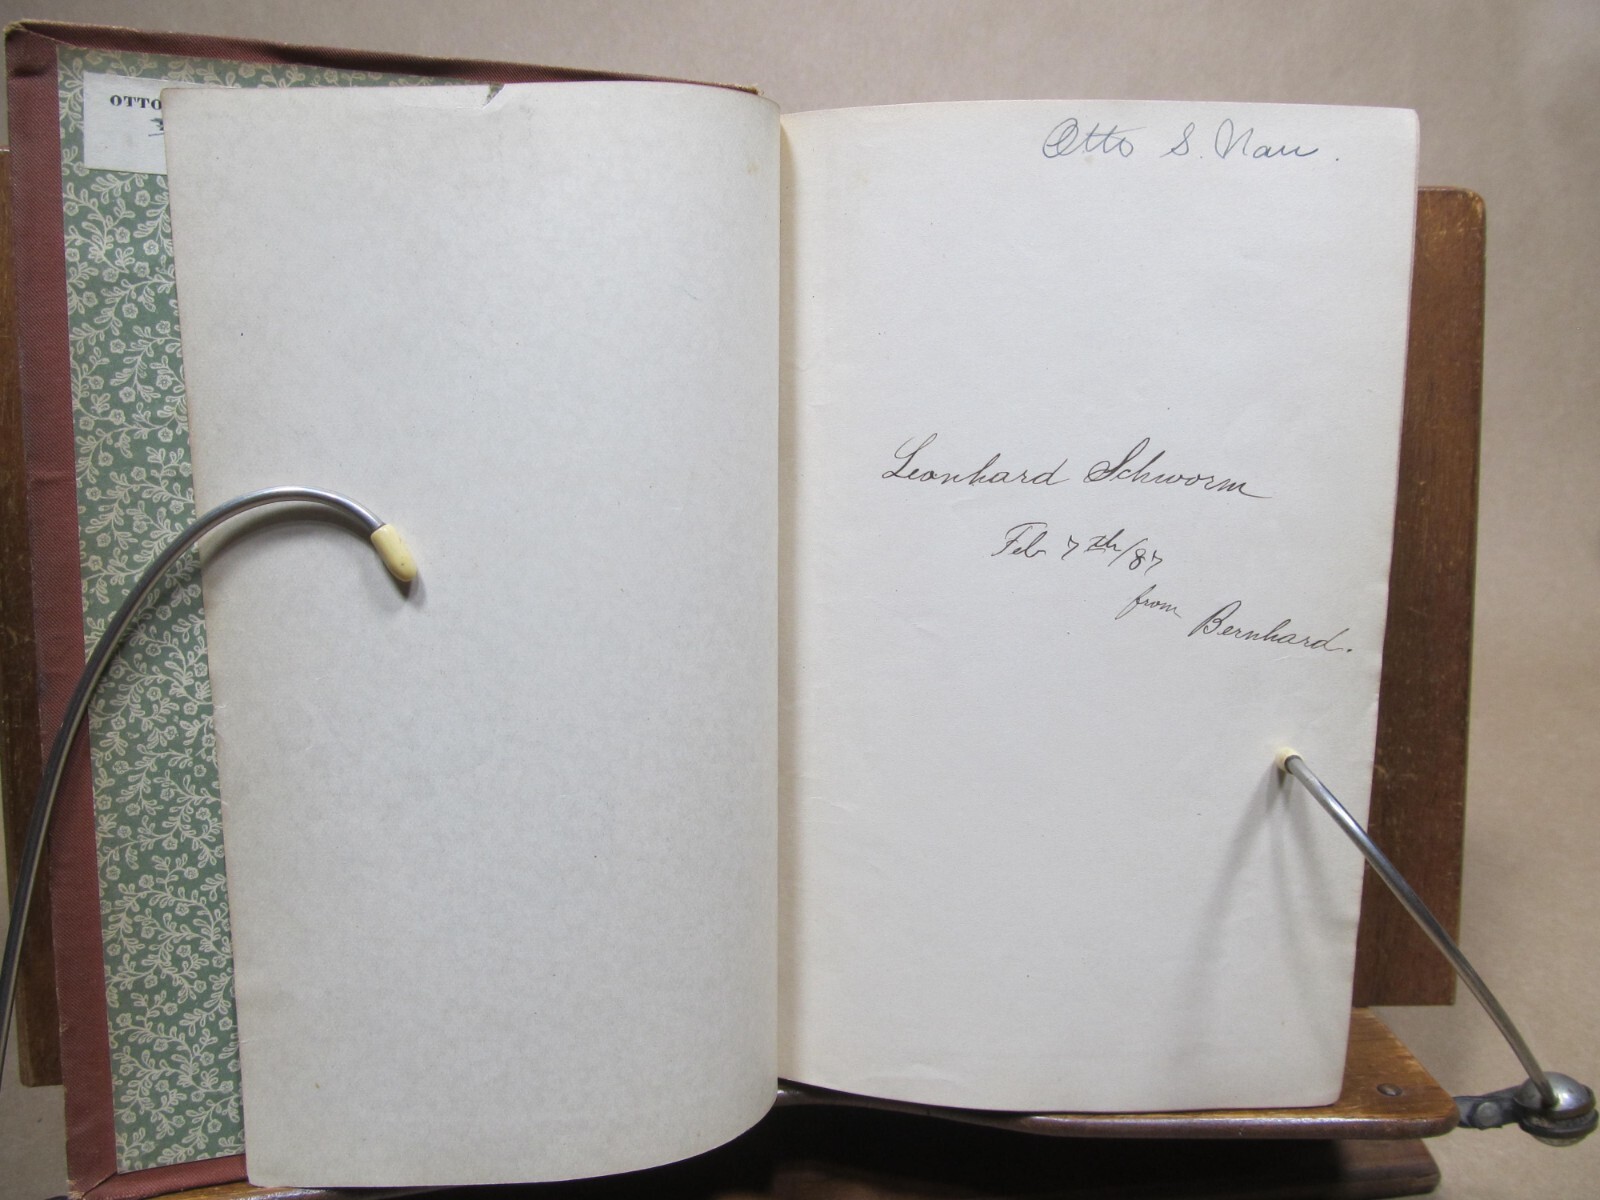 OTTO
Otto S. Nau.
Leonhard Schworm
Feb 7th/87
from Bernhard.